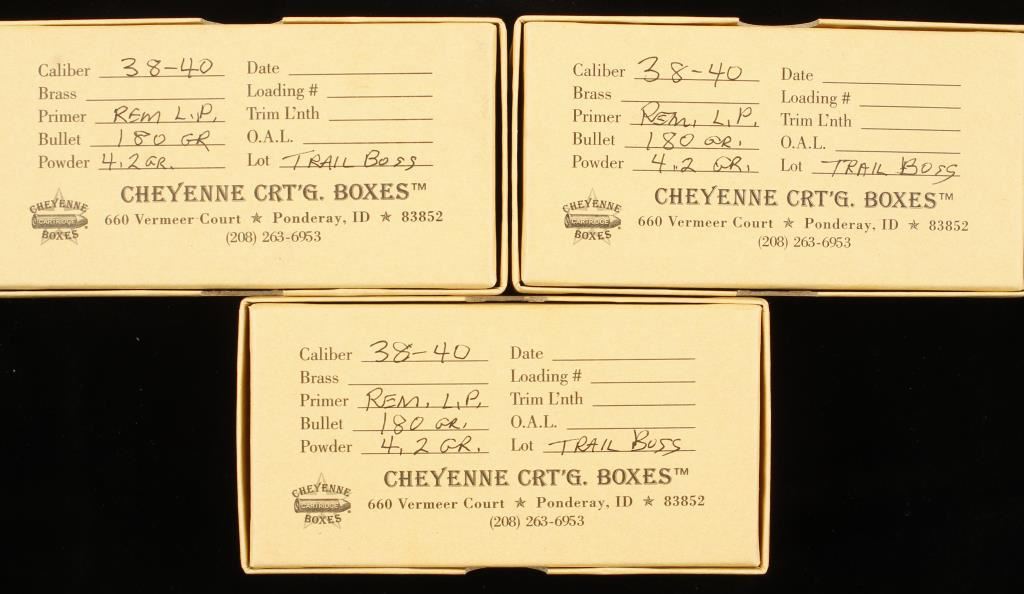 Caliber 38-40 Date
Brass Loading #
Primer REM L.P. Trim L'nth
Bullet 180 GR O.A.L.
Powder 4.2 GR. Lot TRAIL BOSS
CHEYENNE CRT'G. BOXES™
660 Vermeer Court ★ Ponderay, ID ★ 83852
(208) 263-6953
CHEYENNE
CARTRIDGE
BOXES
Caliber 38-40 Date
Brass Loading #
Primer REM, L.P. Trim L'nth
Bullet 180 GR. O.A.L.
Powder 4.2 GR. Lot TRAIL BOSS
CHEYENNE CRT'G. BOXES™
660 Vermeer Court ★ Ponderay, ID ★ 83852
(208) 263-6953
CHEYENNE
CARTRIDGE
BOXES
Caliber 38-40 Date
Brass Loading #
Primer REM. L.P. Trim L'nth
Bullet 180 GR. O.A.L.
Powder 4.2 GR. Lot TRAIL BOSS
CHEYENNE CRT'G. BOXES™
660 Vermeer Court ★ Ponderay, ID ★ 83852
(208) 263-6953
CHEYENNE
CARTRIDGE
BOXES